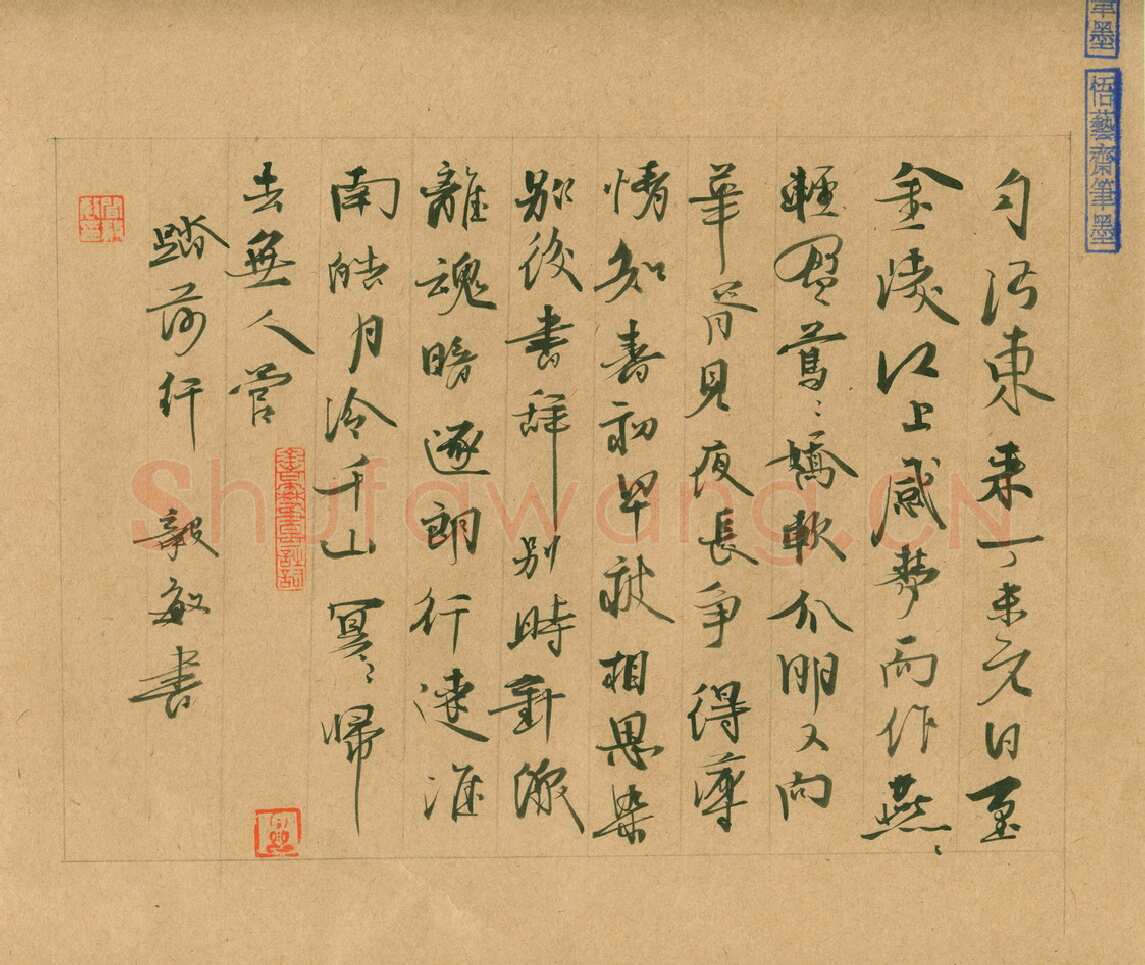 筆墨 悟藝齋筆墨
自沔東來丁未元日至
金陵江上感夢而作燕〻
輕盈鶯〻嬌軟分明又向
華胥見夜長爭得薄
情知春初早被相思染
別後書辭別時針線
離魂暗逐郎行遠淮
南皓月冷千山冥〻歸
去無人管
踏莎行 毅敏書
Shufawang.CN